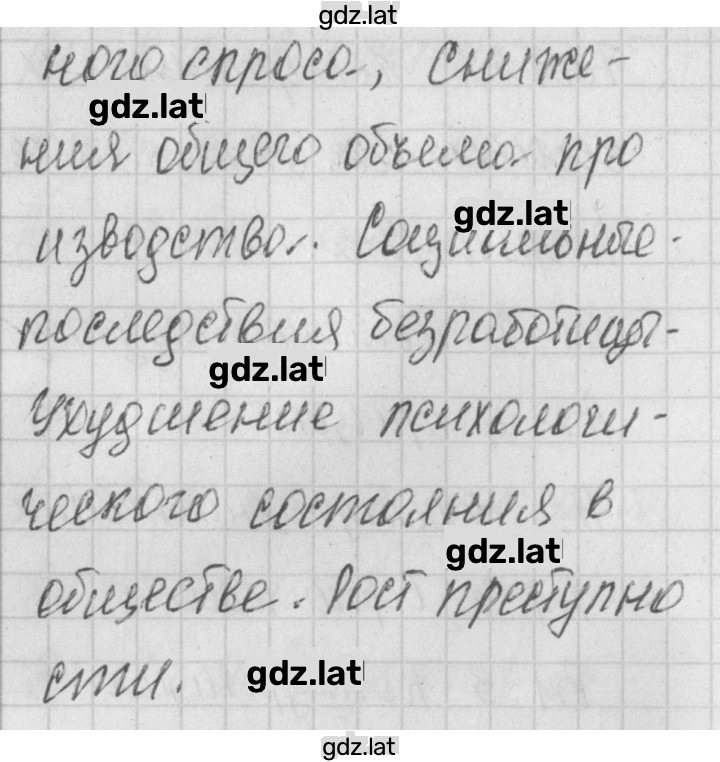 gdz.lat
ного спроса, сниже-
gdz.lat
ния общего объема про
gdz.lat
изводства. Социальные-
последствия безработицы-
gdz.lat
Ухудшение психологи-
ческого состояния в
gdz.lat
обществе. Рост преступно
сти.
gdz.lat
gdz.lat